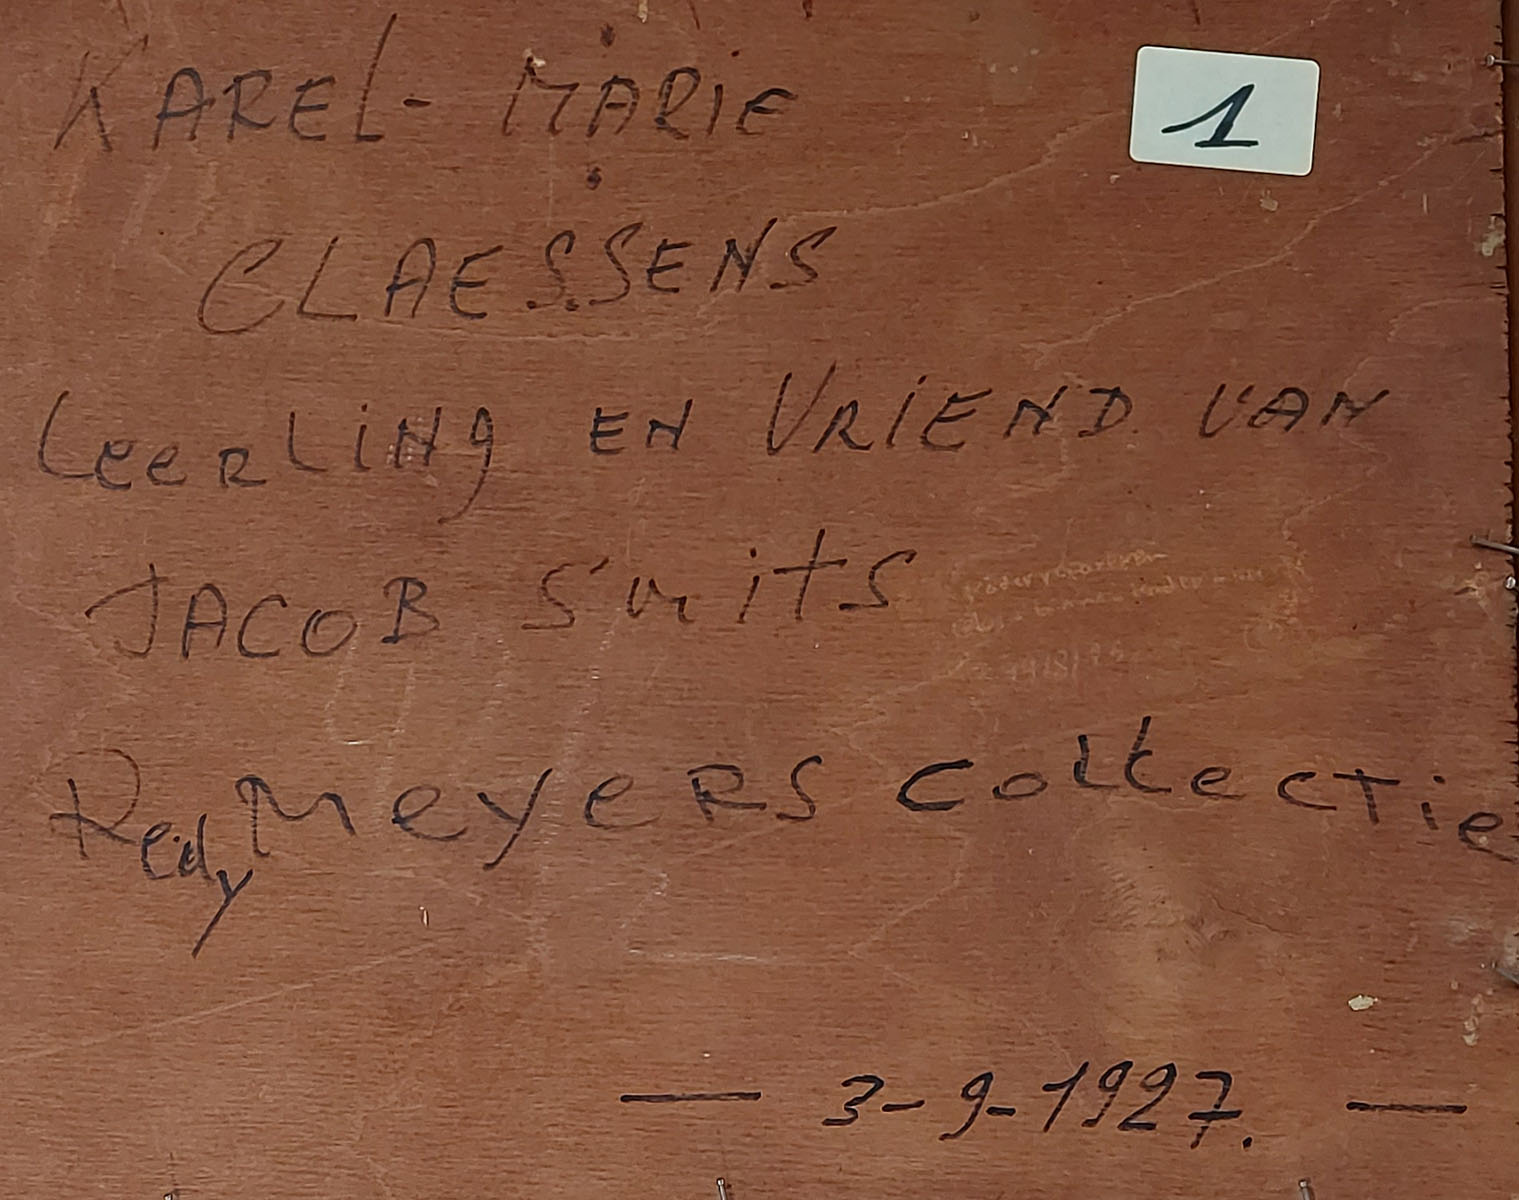 KAREL- MARIE
1
CLAESSENS
LeerLiNg EN VRiEND VAN
JACOB Smits
Meyers Collectie
— 3-9-1927. —